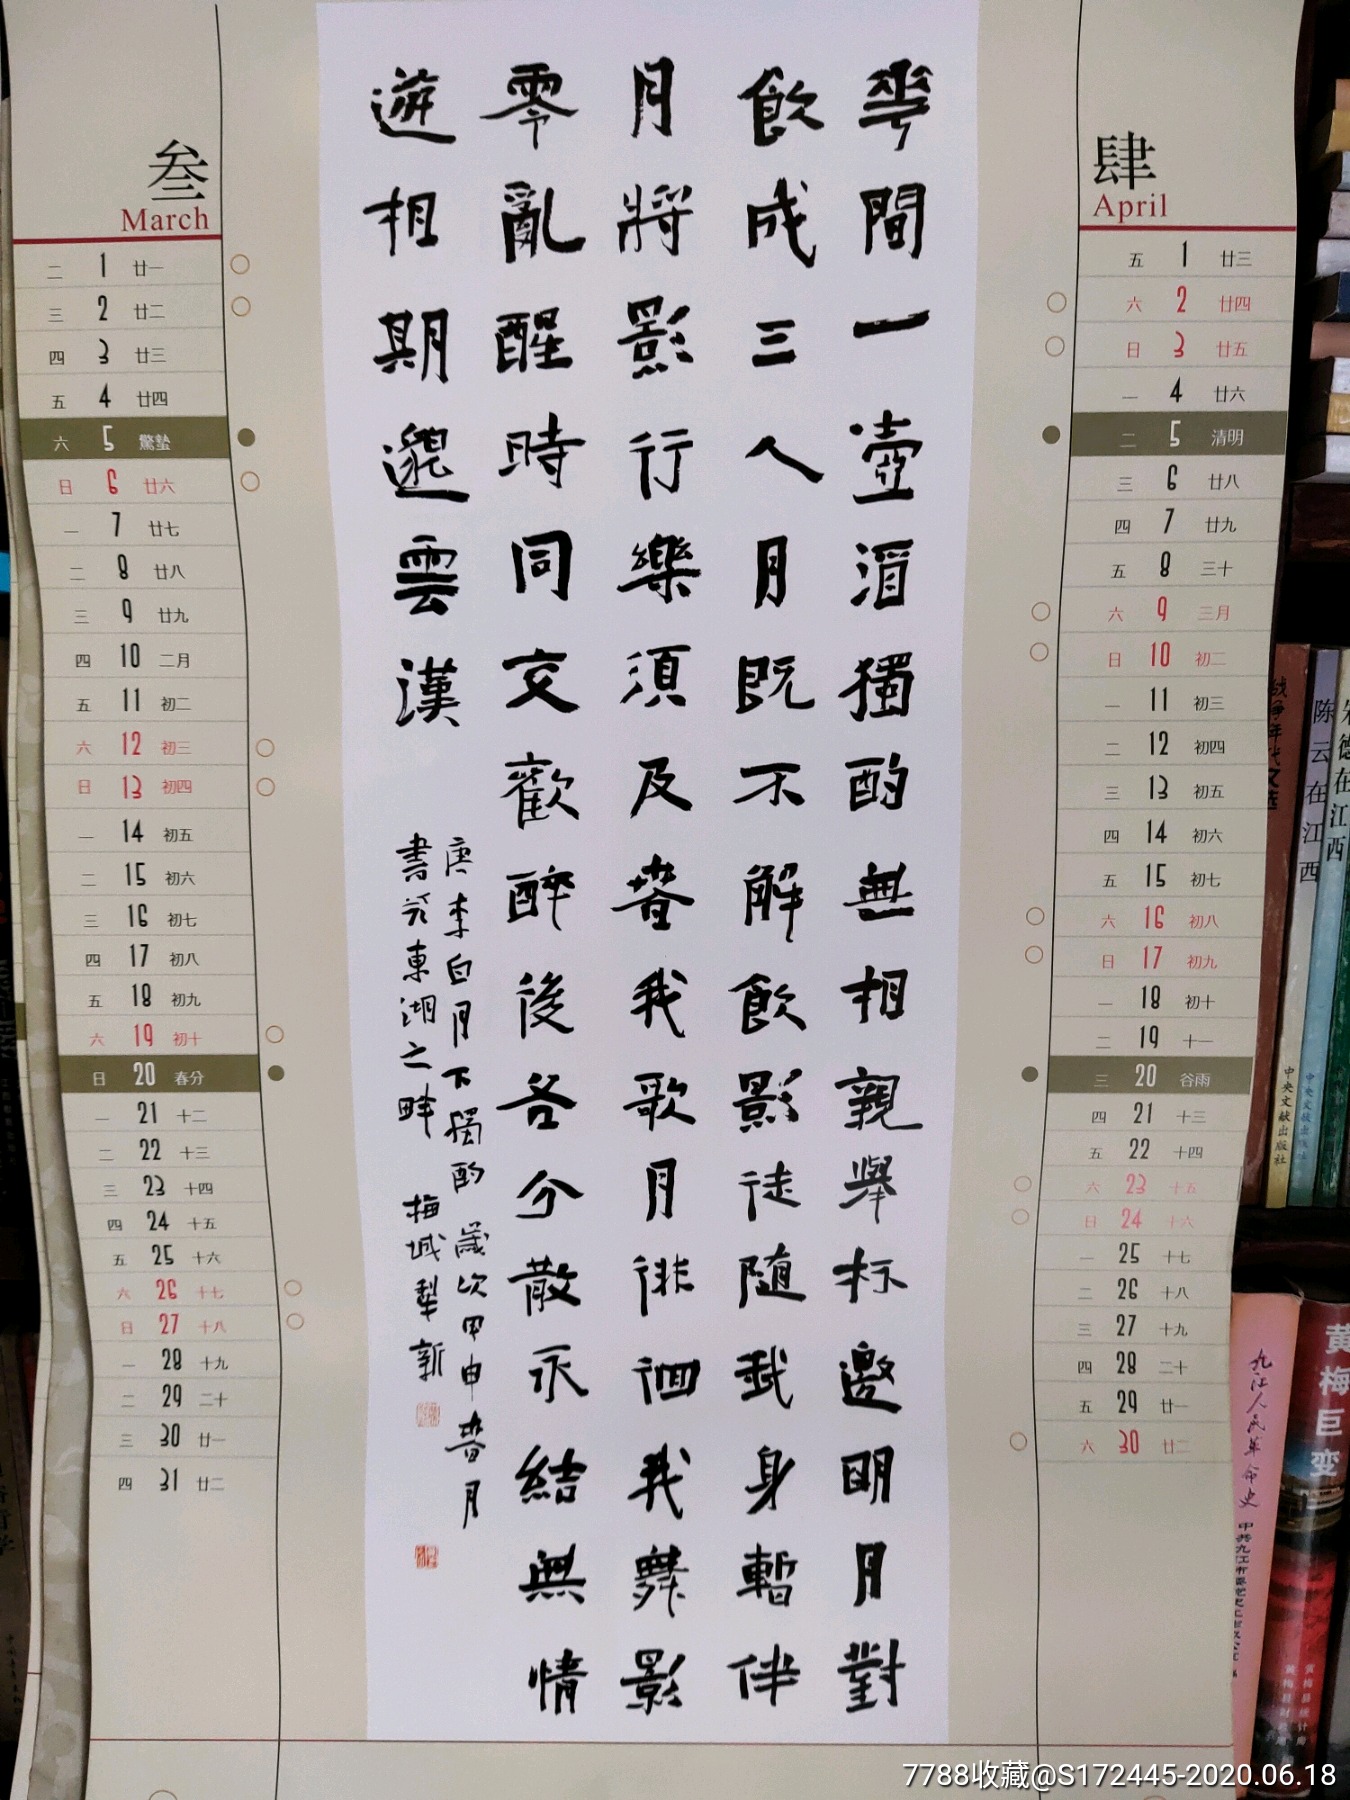 叁
March
二 1 廿一
三 2 廿二
四 3 廿三
五 4 廿四
六 5 驚蟄
日 6 廿六
一 7 廿七
二 8 廿八
三 9 廿九
四 10 二月
五 11 初二
六 12 初三
日 13 初四
一 14 初五
二 15 初六
三 16 初七
四 17 初八
五 18 初九
六 19 初十
日 20 春分
一 21 十二
二 22 十三
三 23 十四
四 24 十五
五 25 十六
六 26 十七
日 27 十八
一 28 十九
二 29 二十
三 30 廿一
四 31 廿二
華間一壺酒獨酌無相親舉杯邀明月對
飲成三人月既不解飲影徒隨我身暫伴
月將影行樂須及春我歌月徘徊我舞影
零亂醒時同交歡醉後各分散永結無情
遊相期邈雲漢
唐李白月下獨酌 歲次甲申春月
書於東湖之畔 梅城犁新
肆
April
五 1 廿三
六 2 廿四
日 3 廿五
一 4 廿六
二 5 清明
三 6 廿八
四 7 廿九
五 8 三十
六 9 三月
日 10 初二
一 11 初三
二 12 初四
三 13 初五
四 14 初六
五 15 初七
六 16 初八
日 17 初九
一 18 初十
二 19 十一
三 20 谷雨
四 21 十三
五 22 十四
六 23 十五
日 24 十六
一 25 十七
二 26 十八
三 27 十九
四 28 二十
五 29 廿一
六 30 廿二
陈云在江西
朱德在江西
中央文献出版社
中央文献出版社
九江人民革命史
黄梅巨变
7788收藏@S172445-2020.06.18